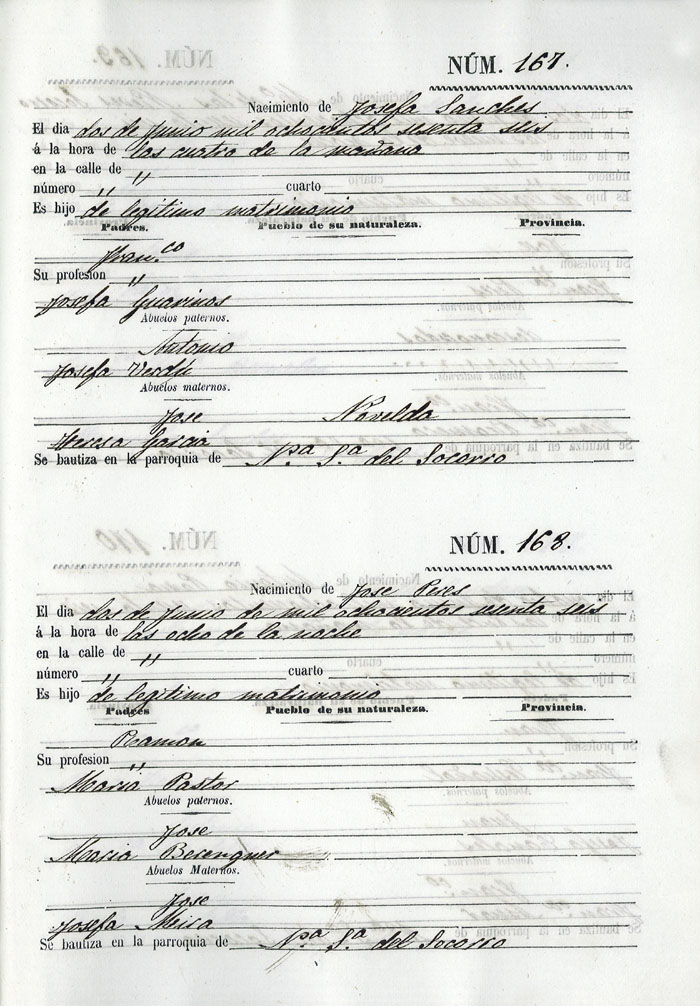 NÚM. 167.
Nacimiento de Josefa Sanches
El dia dos de Junio mil ochocientos sesenta seis
á la hora de las cuatro de la mañana
en la calle de "
número " cuarto
Es hijo de legitimo matrimonio
Padres. Pueblo de su naturaleza. Provincia.
Fran.co
Su profesion "
Josefa Guarinos
Abuelos paternos.
Antonio
Josefa Verdú
Abuelos maternos.
Jose Novelda
Teresa Garcia
Se bautiza en la parroquia de N.ra S.ra del Socorro
NÚM. 168.
Nacimiento de Jose Peres
El dia dos de Junio de mil ochocientos sesenta seis
á la hora de las ocho de la noche
en la calle de "
número " cuarto
Es hijo de legitimo matrimonio
Padres Pueblo de su naturaleza. Provincia.
Ramon
Su profesion "
Maria Pastor
Abuelos paternos.
Jose
Maria Berenguer
Abuelos Maternos.
Jose
Josefa Mira
Se bautiza en la parroquia de N.ra S.ra del Socorro